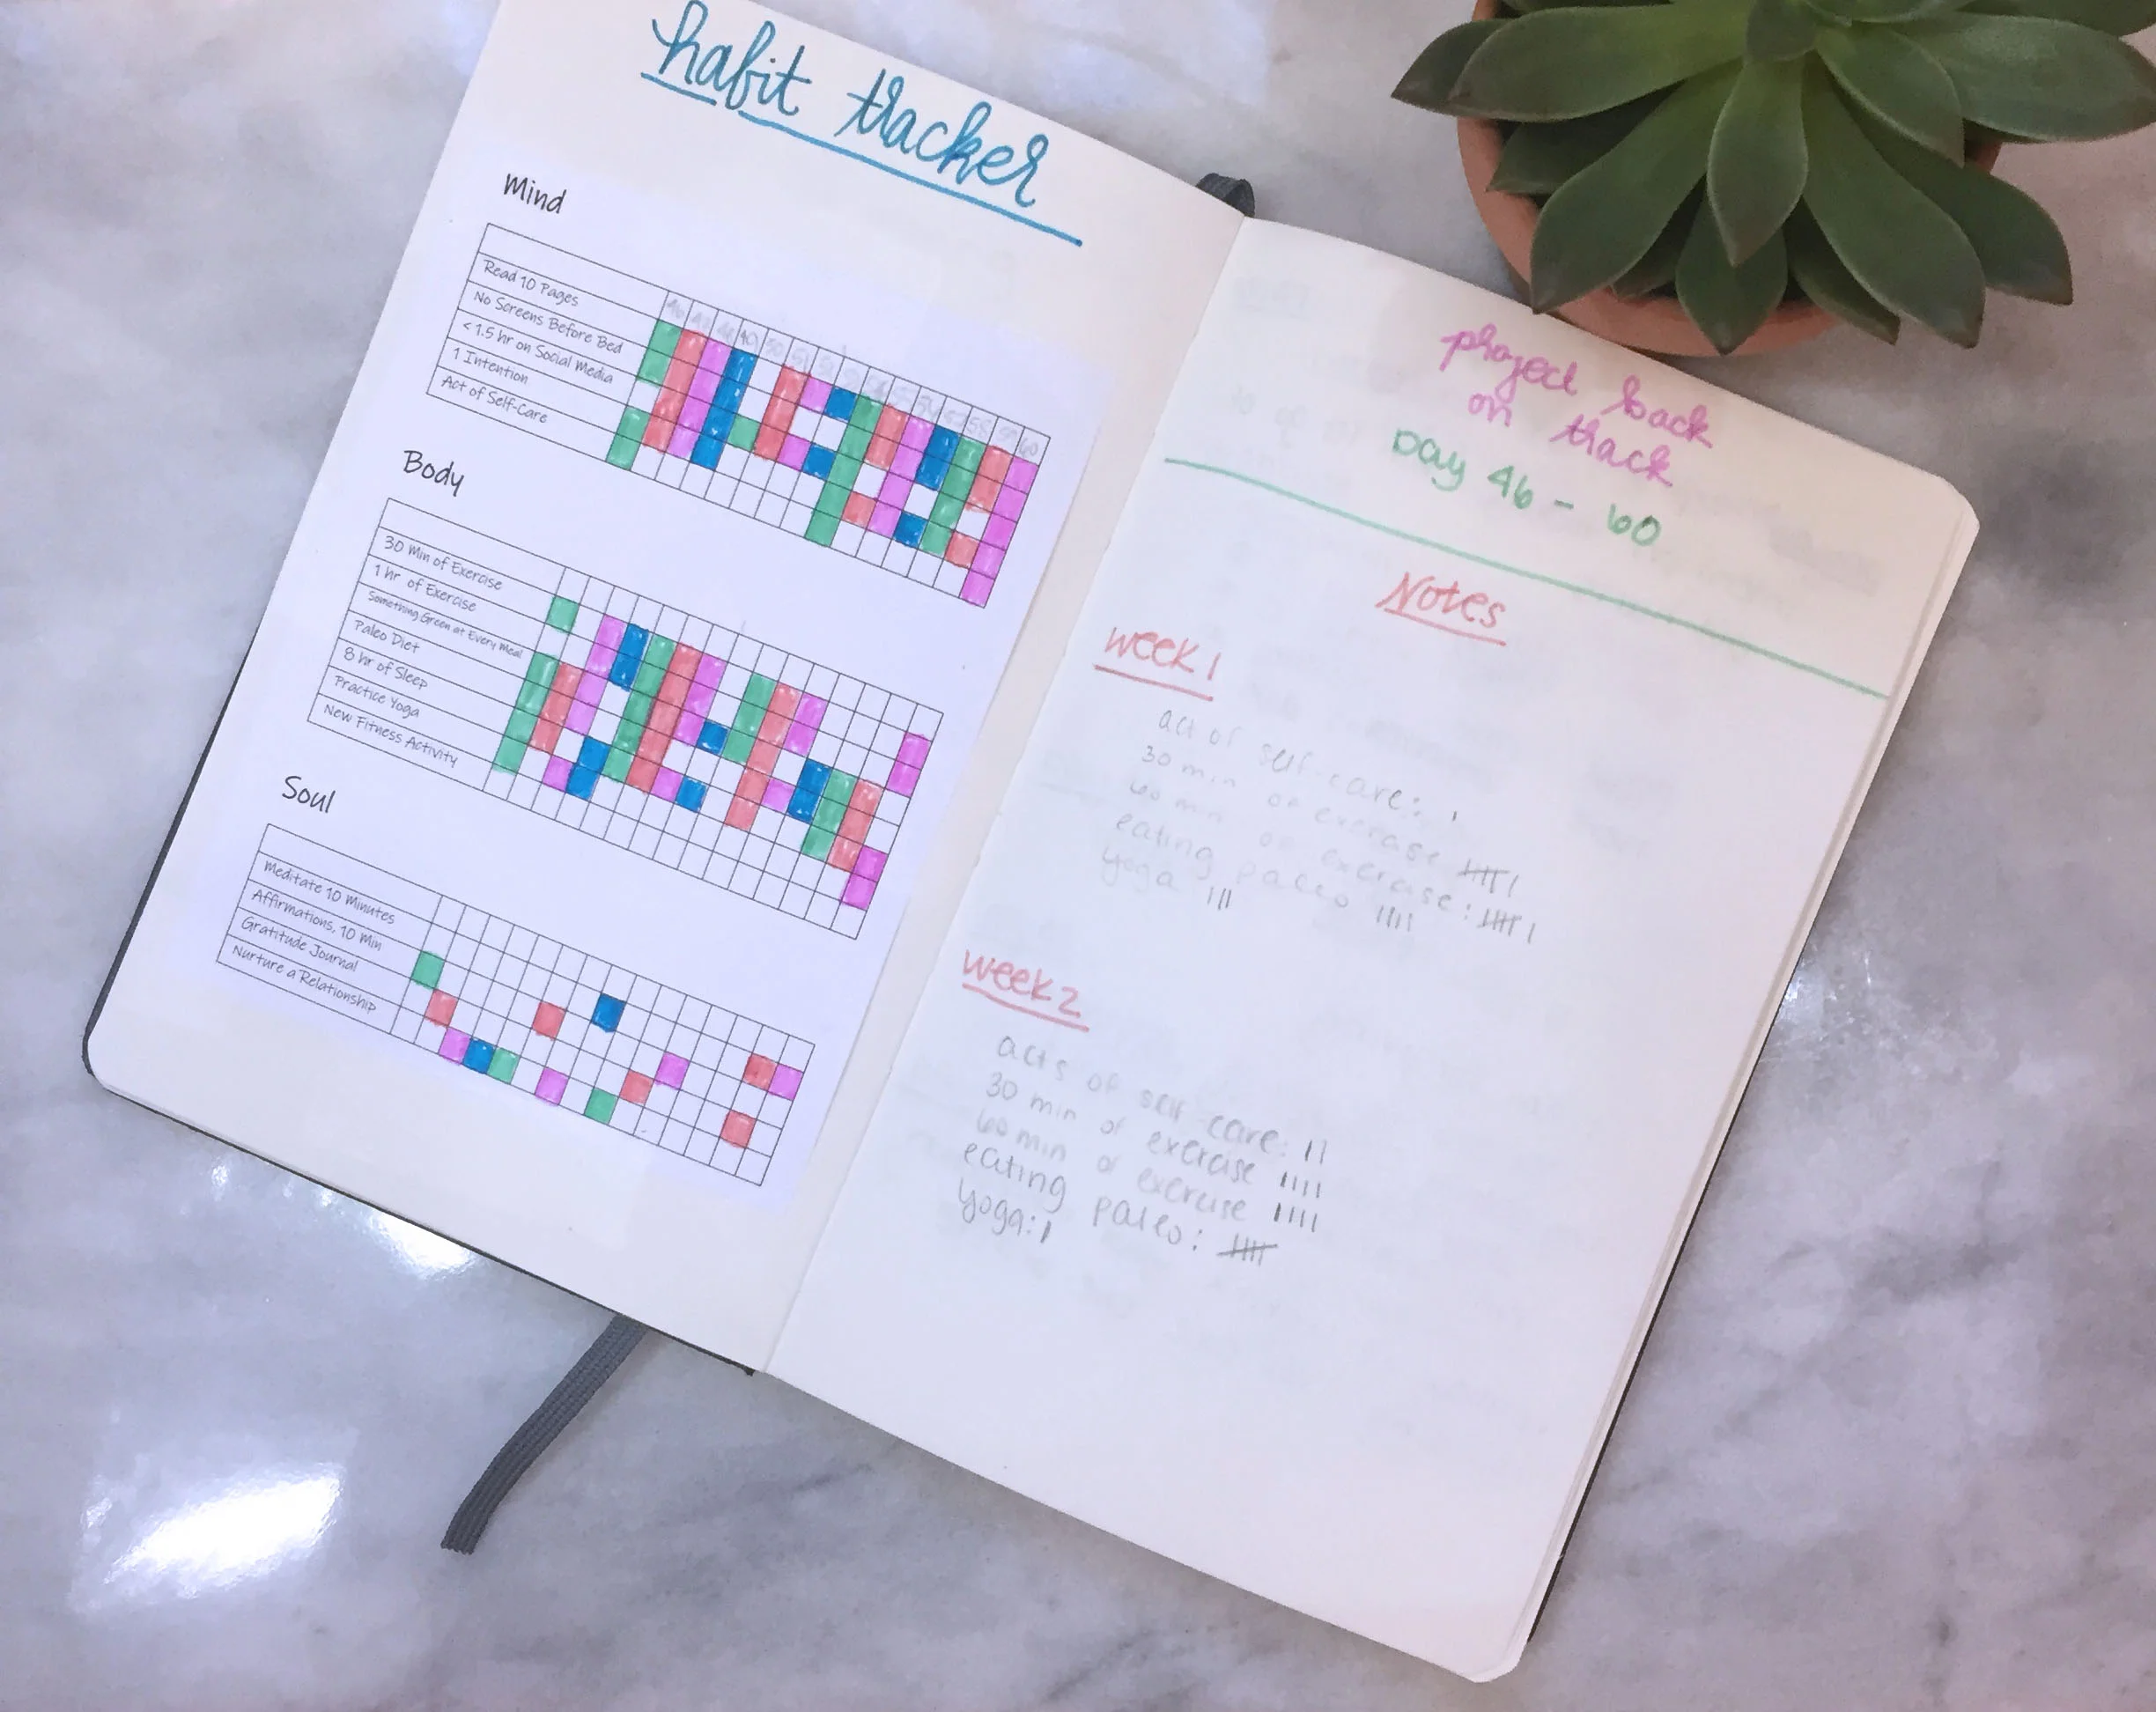 habit tracker
Mind
46 47 48 49 50 51 52 53 54 55 56 57 58 59 60
Read 10 Pages
No Screens Before Bed
< 1.5 hr on Social Media
1 Intention
Act of Self-Care
Body
30 Min of Exercise
1 hr of Exercise
Something Green at Every Meal
Paleo Diet
8 hr of Sleep
Practice Yoga
New Fitness Activity
Soul
Meditate 10 Minutes
Affirmations, 10 Min
Gratitude Journal
Nurture a Relationship
project back
on track
Day 46 - 60
Notes
week 1
act of self-care:
30 min of exercise
60 min of exercise:
eating paleo
yoga
week 2
acts of self care:
30 min of exercise
60 min of exercise
eating paleo:
yoga: